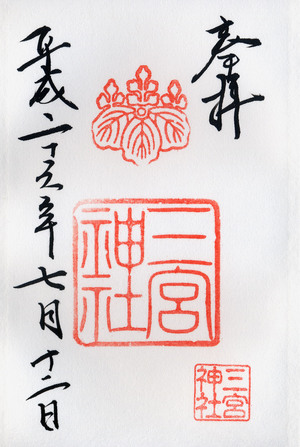 奉拝
三宮
神社
三宮
神社
平成二十六年七月十二日